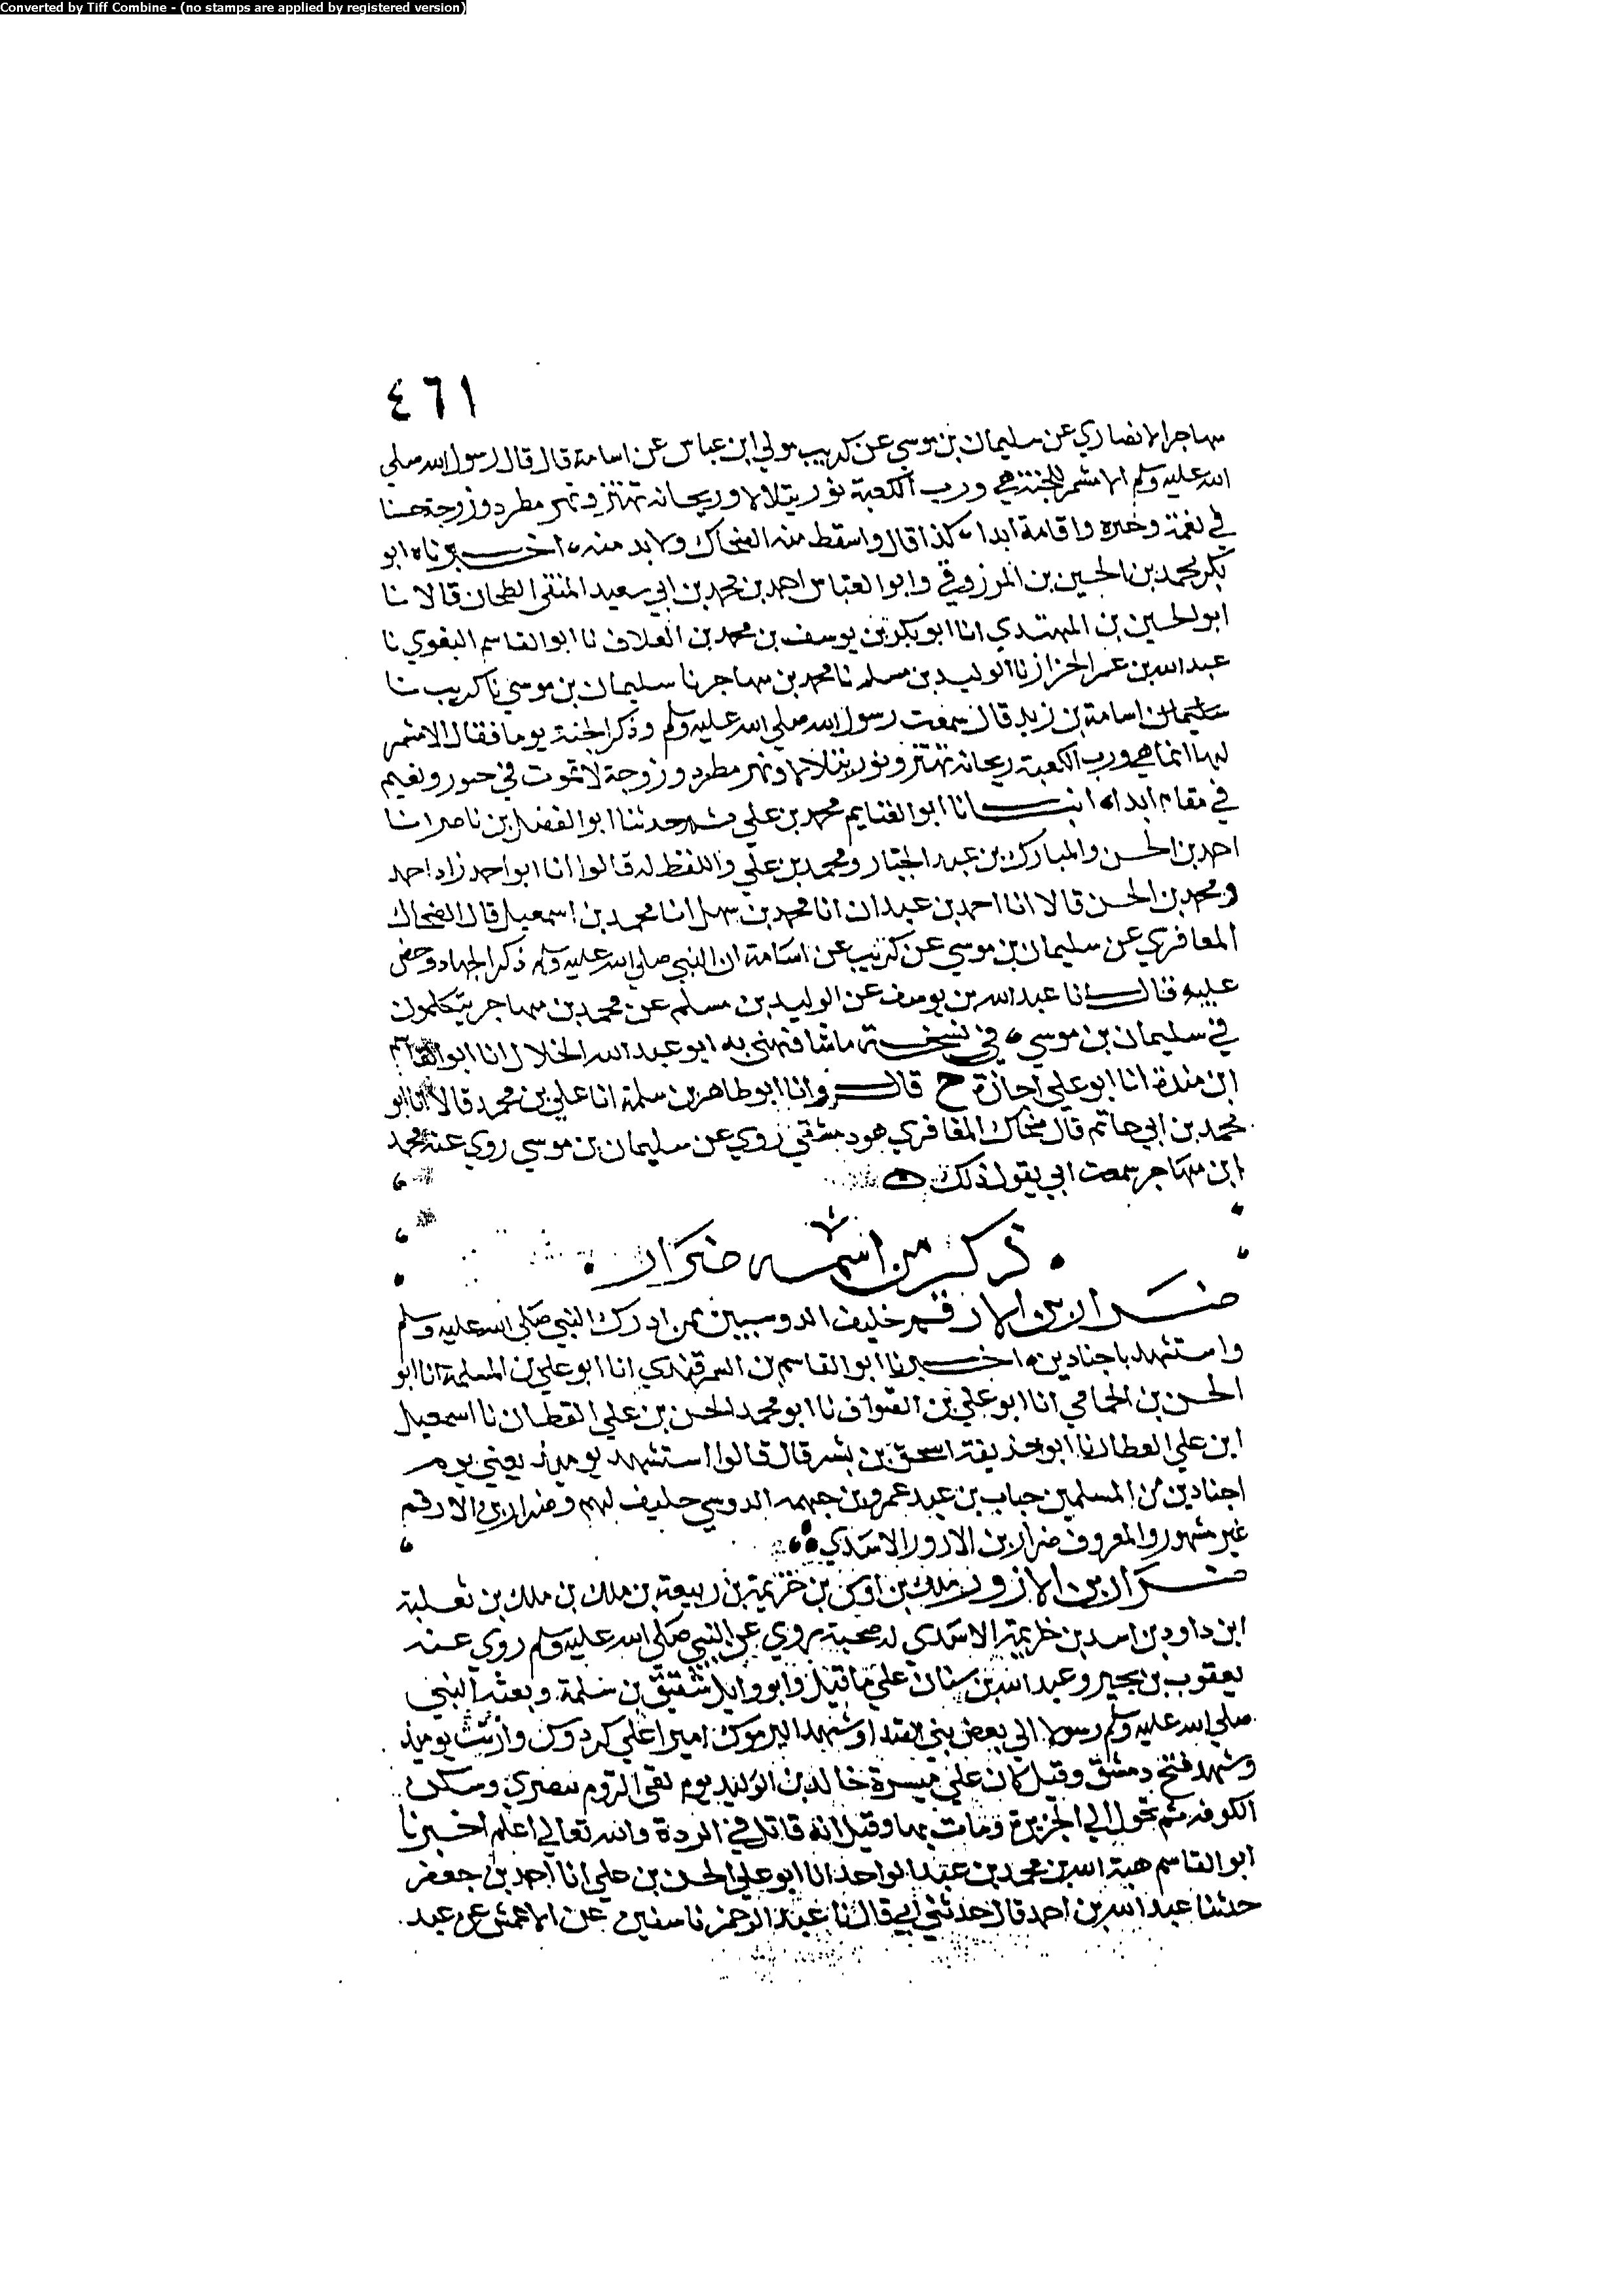 Converted by Tiff Combine - (no stamps are applied by registered version)
٤٦١
مهاجر الانصاري عن سليمان بن موسي عن كريب مولي ابن عباس عن اسامة قال قال رسول الله صلي
الله عليه وسلم الا مشمر للجنة هي ورب الكعبة نور يتلالا وريحانه تهتز ونهر مطرد وزوجة حسنا
في نعمة وخيره واقامة ابدا كذا قال واسقط منه الضحاك ولا بد منه اخبرناه ابو
بكر محمد بن الحسين بن المزرفي وابو العباس احمد بن محمد بن ابي سعيد المنقي الطحان قالا نا
ابو الحسين بن المهتدي انا ابو بكر بن يوسف بن محمد بن العلاف نا ابو القاسم البغوي نا
عبد الله بن عمر الخزاز نا الوليد بن مسلم نا محمد بن مهاجر نا سليمان بن موسي نا كريب نا
سليمان اسامة بن زيد قال سمعت رسول الله صلي الله عليه وسلم وذكر الجنة يوما فقال الا مشمر
لها انما هي ورب الكعبة ريحانه تهتز ونور يتلالا ونهر مطرد وزوجة لا تموت في حبور ونعيم
في مقام ابدا انبانا ابو الغنايم محمد بن علي ثم حدثنا ابو الفضل بن ناصر انا
احمد بن الحسن والمبارك بن عبد الجبار ومحمد بن علي واللفظ له قالوا انا ابو احمد زاد احمد
ومحمد بن الحسن قالا انا احمد بن عبدان انا محمد بن سهل انا محمد بن اسمعيل قال الضحاك
المعافري عن سليمان بن موسي عن كريب عن اسامة ان النبي صلي الله عليه وسلم ذكر الجهاد وحض
عليه قال انا عبد الله بن يوسف عن الوليد بن مسلم عن محمد بن مهاجر يتكلمون
في سليمان بن موسي في نسخة ما شافهني به ابو عبد الله الخلال انا ابو القاسم
ابن مندة انا ابو علي اجازة ح قال وانا ابو طاهر بن سلمة انا علي بن محمد قالا انا ابو
محمد بن ابي حاتم قال ضحاك المعافري هو دمشقي روي عن سليمان بن موسي روي عنه محمد
ابن مهاجر سمعت ابي يقول ذلك
ذكر من اسمه ضرار
ضرار بن الارقم حليف الدوسيين ممن ادرك النبي صلي الله عليه وسلم
واستشهد باجنادين اخبرنا ابو القاسم بن السمرقندي انا ابو علي بن المسلمة انا ابو
الحسن بن الحمامي انا ابو علي بن الصواف نا ابو محمد الحسن بن علي القطان نا اسمعيل
ابن علي العطار نا ابو حذيفة اسحق بن بشر قال قالوا استشهد يوميذ يعني يوم
اجنادين من المسلمين حباب بن عبد عمرو بن جهمه الدوسي حليف لهم وضرار بن الارقم
غير مشهور والمعروف ضرار بن الازور الاسدي
ضرار بن الازور ملك بن اوس بن خزيمة بن ربيعة بن ملك بن ملك بن ثعلبة
ابن داود بن اسد بن خزيمة الاسدي له صحبة يروي عن النبي صلي الله عليه وسلم روي عنه
يعقوب بن بجير وعبد الله بن سنان علي ما قيل وابو وايل شقيق بن سلمة وبعثه النبي
صلي الله عليه وسلم رسولا الي بعض بني الصيدا وشهد اليرموك اميرا علي كردوس وارتث يوميذ
وشهد فتح دمشق وقيل كان علي ميسرة خالد بن الوليد يوم لقي الروم ببصري وسكن
الكوفه ثم تحول الي الجزيرة ومات بها وقيل انه قاتل في الردة والله تعالي اعلم اخبرنا
ابو القاسم هبة الله بن محمد بن عبد الواحد انا ابو علي الحسن بن علي انا احمد بن جعفر
حدثنا عبد الله بن احمد قال حدثني ابي قال نا عبد الرحمن نا سفين عن الاعمش عن عبد